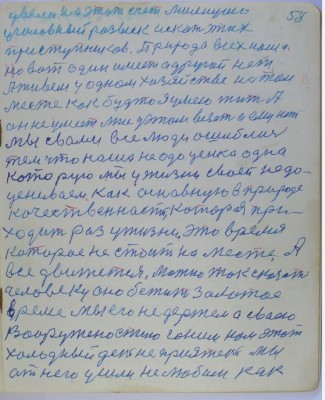 58
увели на этот счет милиция
уголовный розыск искат этих
приступников. Природа всех наша.
но вот один имеет а другой нет
Аживем у одном хозяйстве на том
месте как будто я умею жит А
он не умеет
мы свами все люди ошиблися
тем что наша недооценка одна
которую мы ужизни своей недо-
цениваем, как основную в природе
качественность, которая при-
ходит раз ужизни. Это время
которое не стоит на месте. А
все движется, можно так сказат
человеку оно бежит Золотое
время мы его не держем а свою
Вооруженостию гоним нам этот
холодный ден не приятен мы
от него ушли не любим как